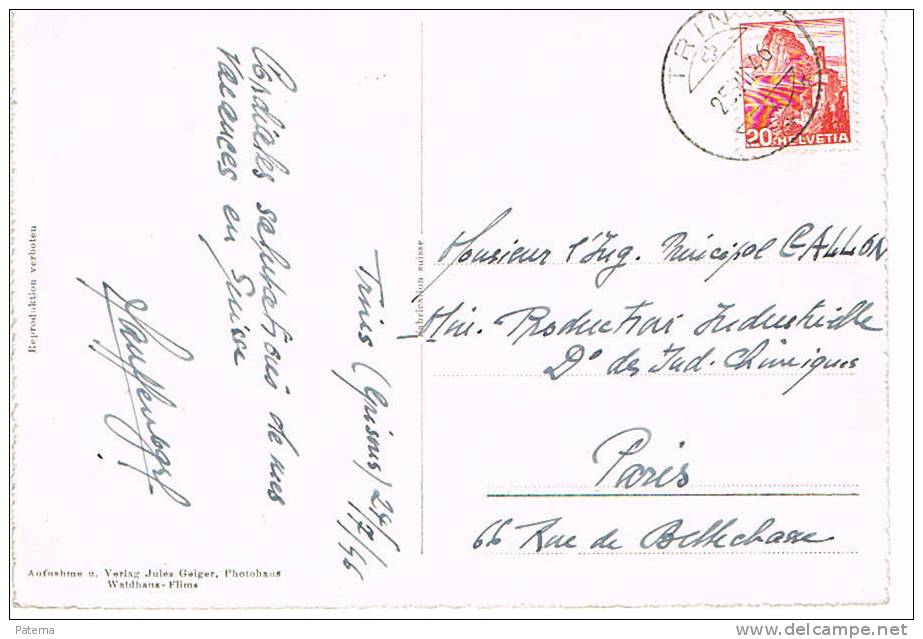 Cordiales salutations de mes
vacances en Suisse
Trins (Grisons) 24/
7/46
Reproduktion verboten
Aufnahme u. Verlag Jules Geiger, Photohaus
Waldhaus-Flims
Fabrication suisse
TRIN
25. VII. 46
20 HELVETIA
Monsieur l'Ing. Principal CALLON
Min. Production Industrielle
D° des Ind. Chimiques
Paris
66 Rue de Bellechasse
Paterna
delcampe.net